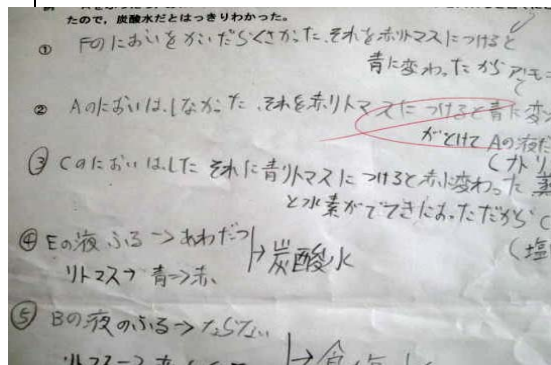 たので,炭酸水だとはっきりわかった。
① Fのにおいをかいだらくさかった、それを赤リトマスにつけると
青に変わったから アンモニ
② Aのにおいは、しなかった、それを赤リトマスにつけると青に変
がとけて Aの液だ
③ Cのにおいは、した それに青リトマスにつけると赤に変わった
と水素がでてきた だから C
(塩
④ Eの液 ふる→あわだつ
リトマス→ 青→赤、
→炭酸水
⑤ Bの液のふる→
リトマス→
→食塩水